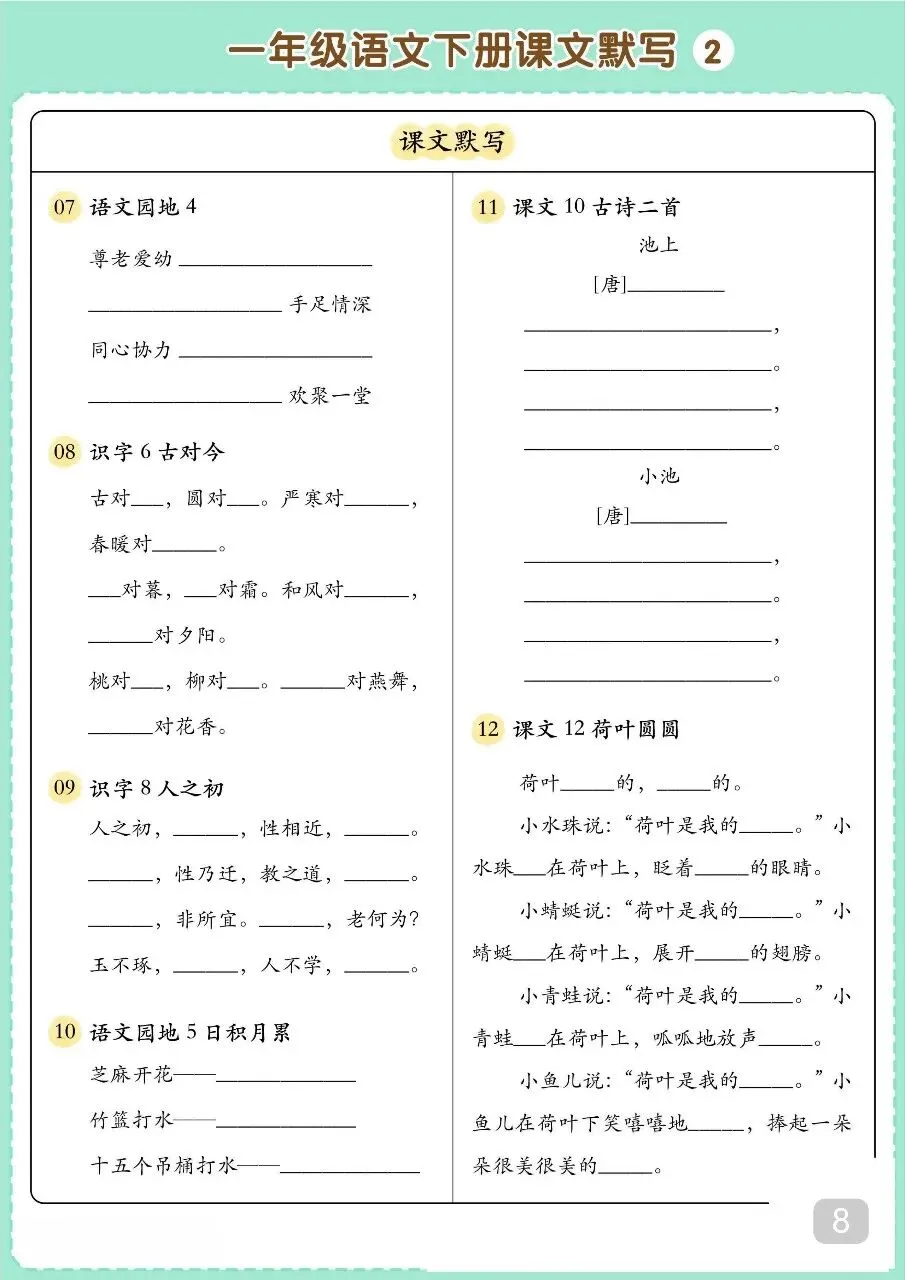 一年级语文下册课文默写 2
课文默写
07 语文园地 4
尊老爱幼 __________________
__________________ 手足情深
同心协力 __________________
__________________ 欢聚一堂
08 识字 6 古对今
古对___，圆对___。严寒对______，
春暖对______。
___对暮，___对霜。和风对______，
______对夕阳。
桃对___，柳对___。______对燕舞，
______对花香。
09 识字 8 人之初
人之初，______，性相近，______。
______，性乃迁，教之道，______。
______，非所宜。______，老何为？
玉不琢，______，人不学，______。
10 语文园地 5 日积月累
芝麻开花——_____________
竹篮打水——_____________
十五个吊桶打水——_____________
11 课文 10 古诗二首
池上
[唐]_________
_______________________，
_______________________。
_______________________，
_______________________。
小池
[唐]_________
_______________________，
_______________________。
_______________________，
_______________________。
12 课文 12 荷叶圆圆
荷叶_____的，_____的。
小水珠说：“荷叶是我的_____。”小
水珠___在荷叶上，眨着_____的眼睛。
小蜻蜓说：“荷叶是我的_____。”小
蜻蜓___在荷叶上，展开_____的翅膀。
小青蛙说：“荷叶是我的_____。”小
青蛙___在荷叶上，呱呱地放声_____。
小鱼儿说：“荷叶是我的_____。”小
鱼儿在荷叶下笑嘻嘻地_____，捧起一朵
朵很美很美的_____。
8